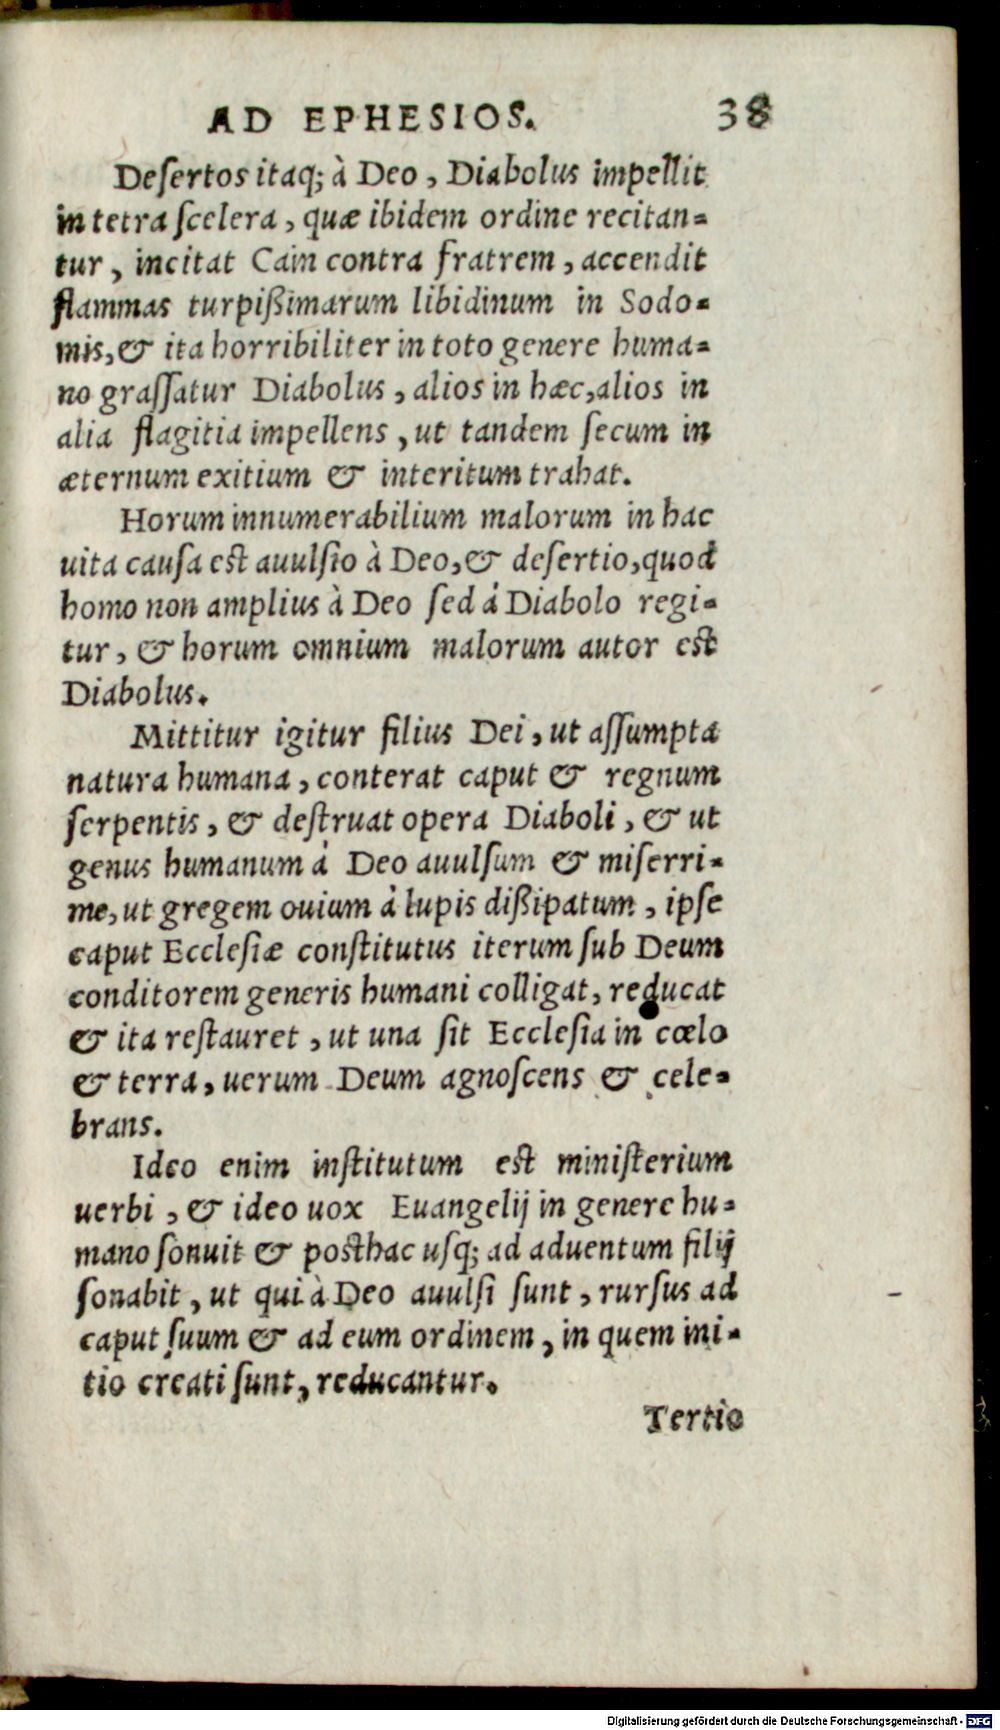 AD EPHESIOS. 38
Deſertos itaq; à Deo, Diabolus impellit
in tetra ſcelera, quæ ibidem ordine recitan-
tur, incitat Cain contra fratrem, accendit
flammas turpißimarum libidinum in Sodo-
mis, & ita horribiliter in toto genere huma-
no graſſatur Diabolus, alios in hæc, alios in
alia flagitia impellens, ut tandem ſecum in
æternum exitium & interitum trahat.
Horum innumerabilium malorum in hac
uita cauſa est auulſio à Deo, & deſertio, quod
homo non amplius à Deo ſed á Diabolo regi-
tur, & horum omnium malorum autor est
Diabolus.
Mittitur igitur filius Dei, ut aſſumpta
natura humana, conterat caput & regnum
ſerpentis, & deſtruat opera Diaboli, & ut
genus humanum á Deo auulſum & miſerri-
me, ut gregem ouium à lupis dißipatum, ipſe
caput Eccleſiæ conſtitutus iterum ſub Deum
conditorem generis humani colligat, reducat
& ita reſtauret, ut una ſit Eccleſia in cœlo
& terra, uerum Deum agnoſcens & cele-
brans.
Ideo enim inſtitutum est miniſterium
uerbi, & ideo uox Euangelij in genere hu-
mano ſonuit & posthac uſq; ad aduentum filij
ſonabit, ut qui à Deo auulſi ſunt, rurſus ad
caput ſuum & ad eum ordinem, in quem ini-
tio creati ſunt, reducantur.
Tertio
Digitalisierung gefördert durch die Deutsche Forschungsgemeinschaft - DFG